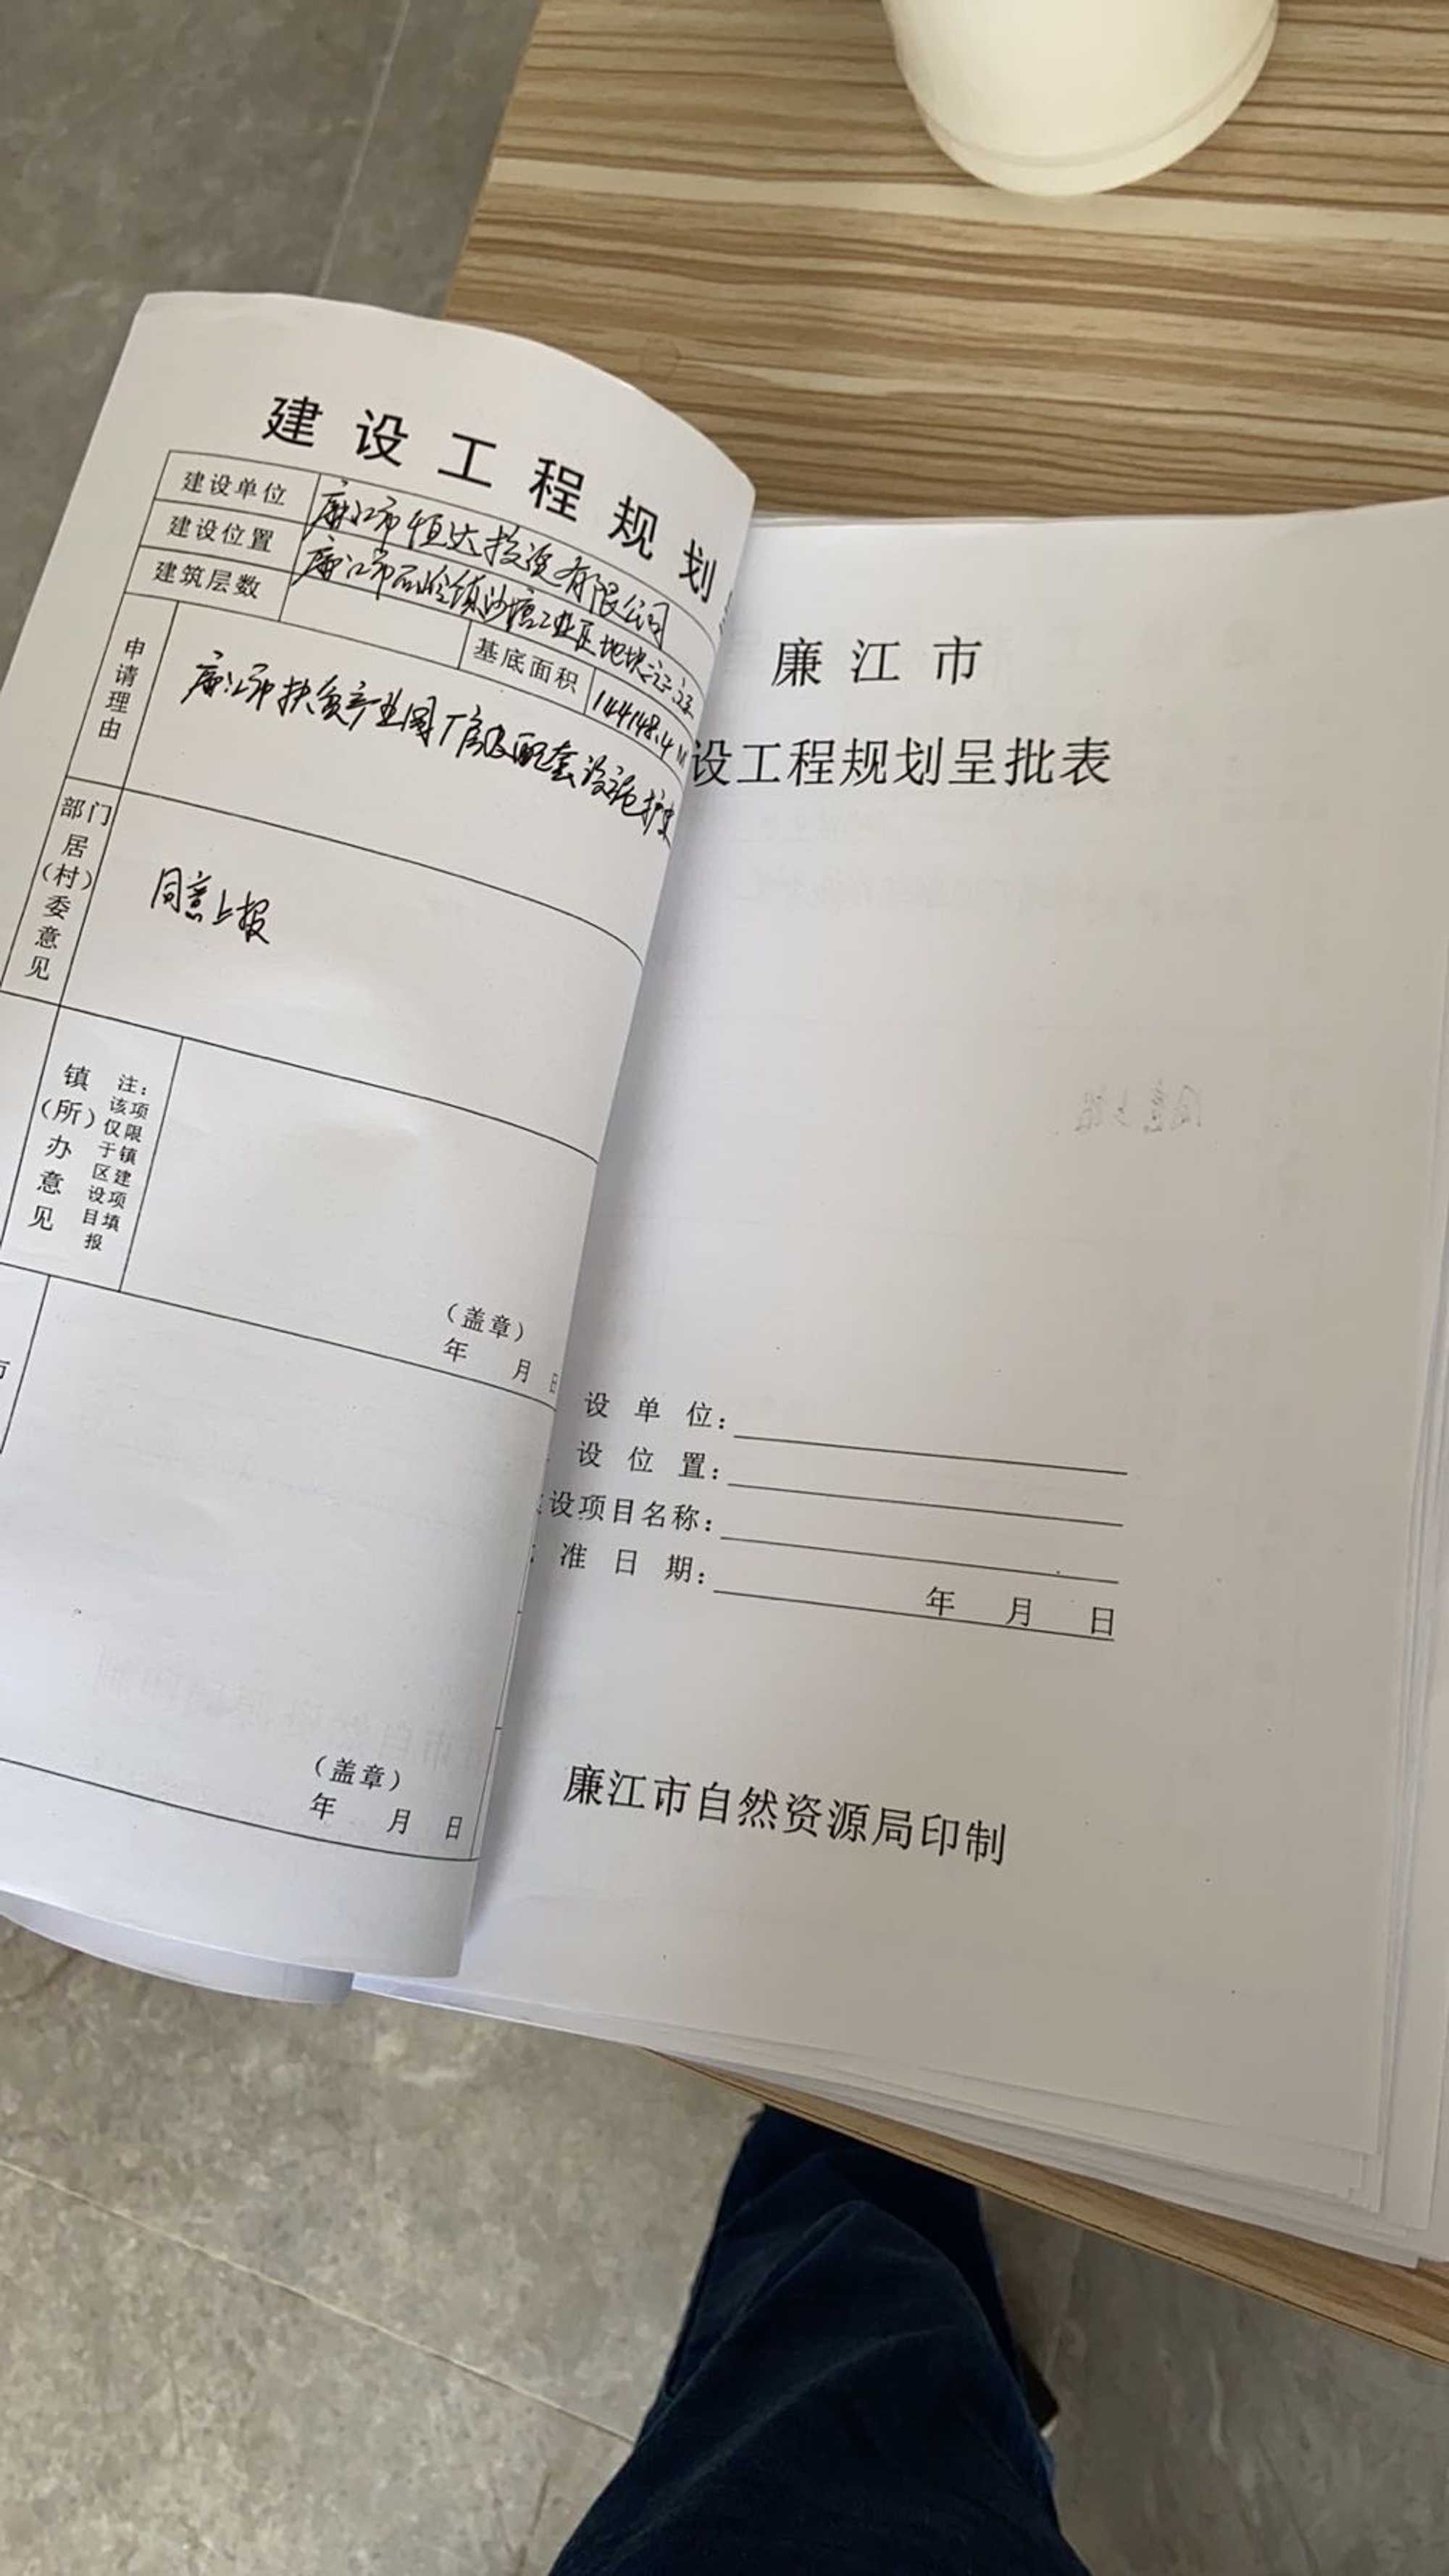 建设工程规划
建设单位 廉江市恒达投资有限公司
建设位置 廉江市石岭镇沙塘工业区地块
建筑层数 基底面积 144148.4 M
申请理由 廉江市扶贫产业园厂房及配套设施
部门居(村)委意见 同意上报
镇(所)办意见
注:该项仅限于镇区建设项目填报
(盖章)
年 月 日
(盖章)
年 月 日
廉江市
设工程规划呈批表
设单位:
设位置:
设项目名称:
准日期: 年 月 日
廉江市自然资源局印制